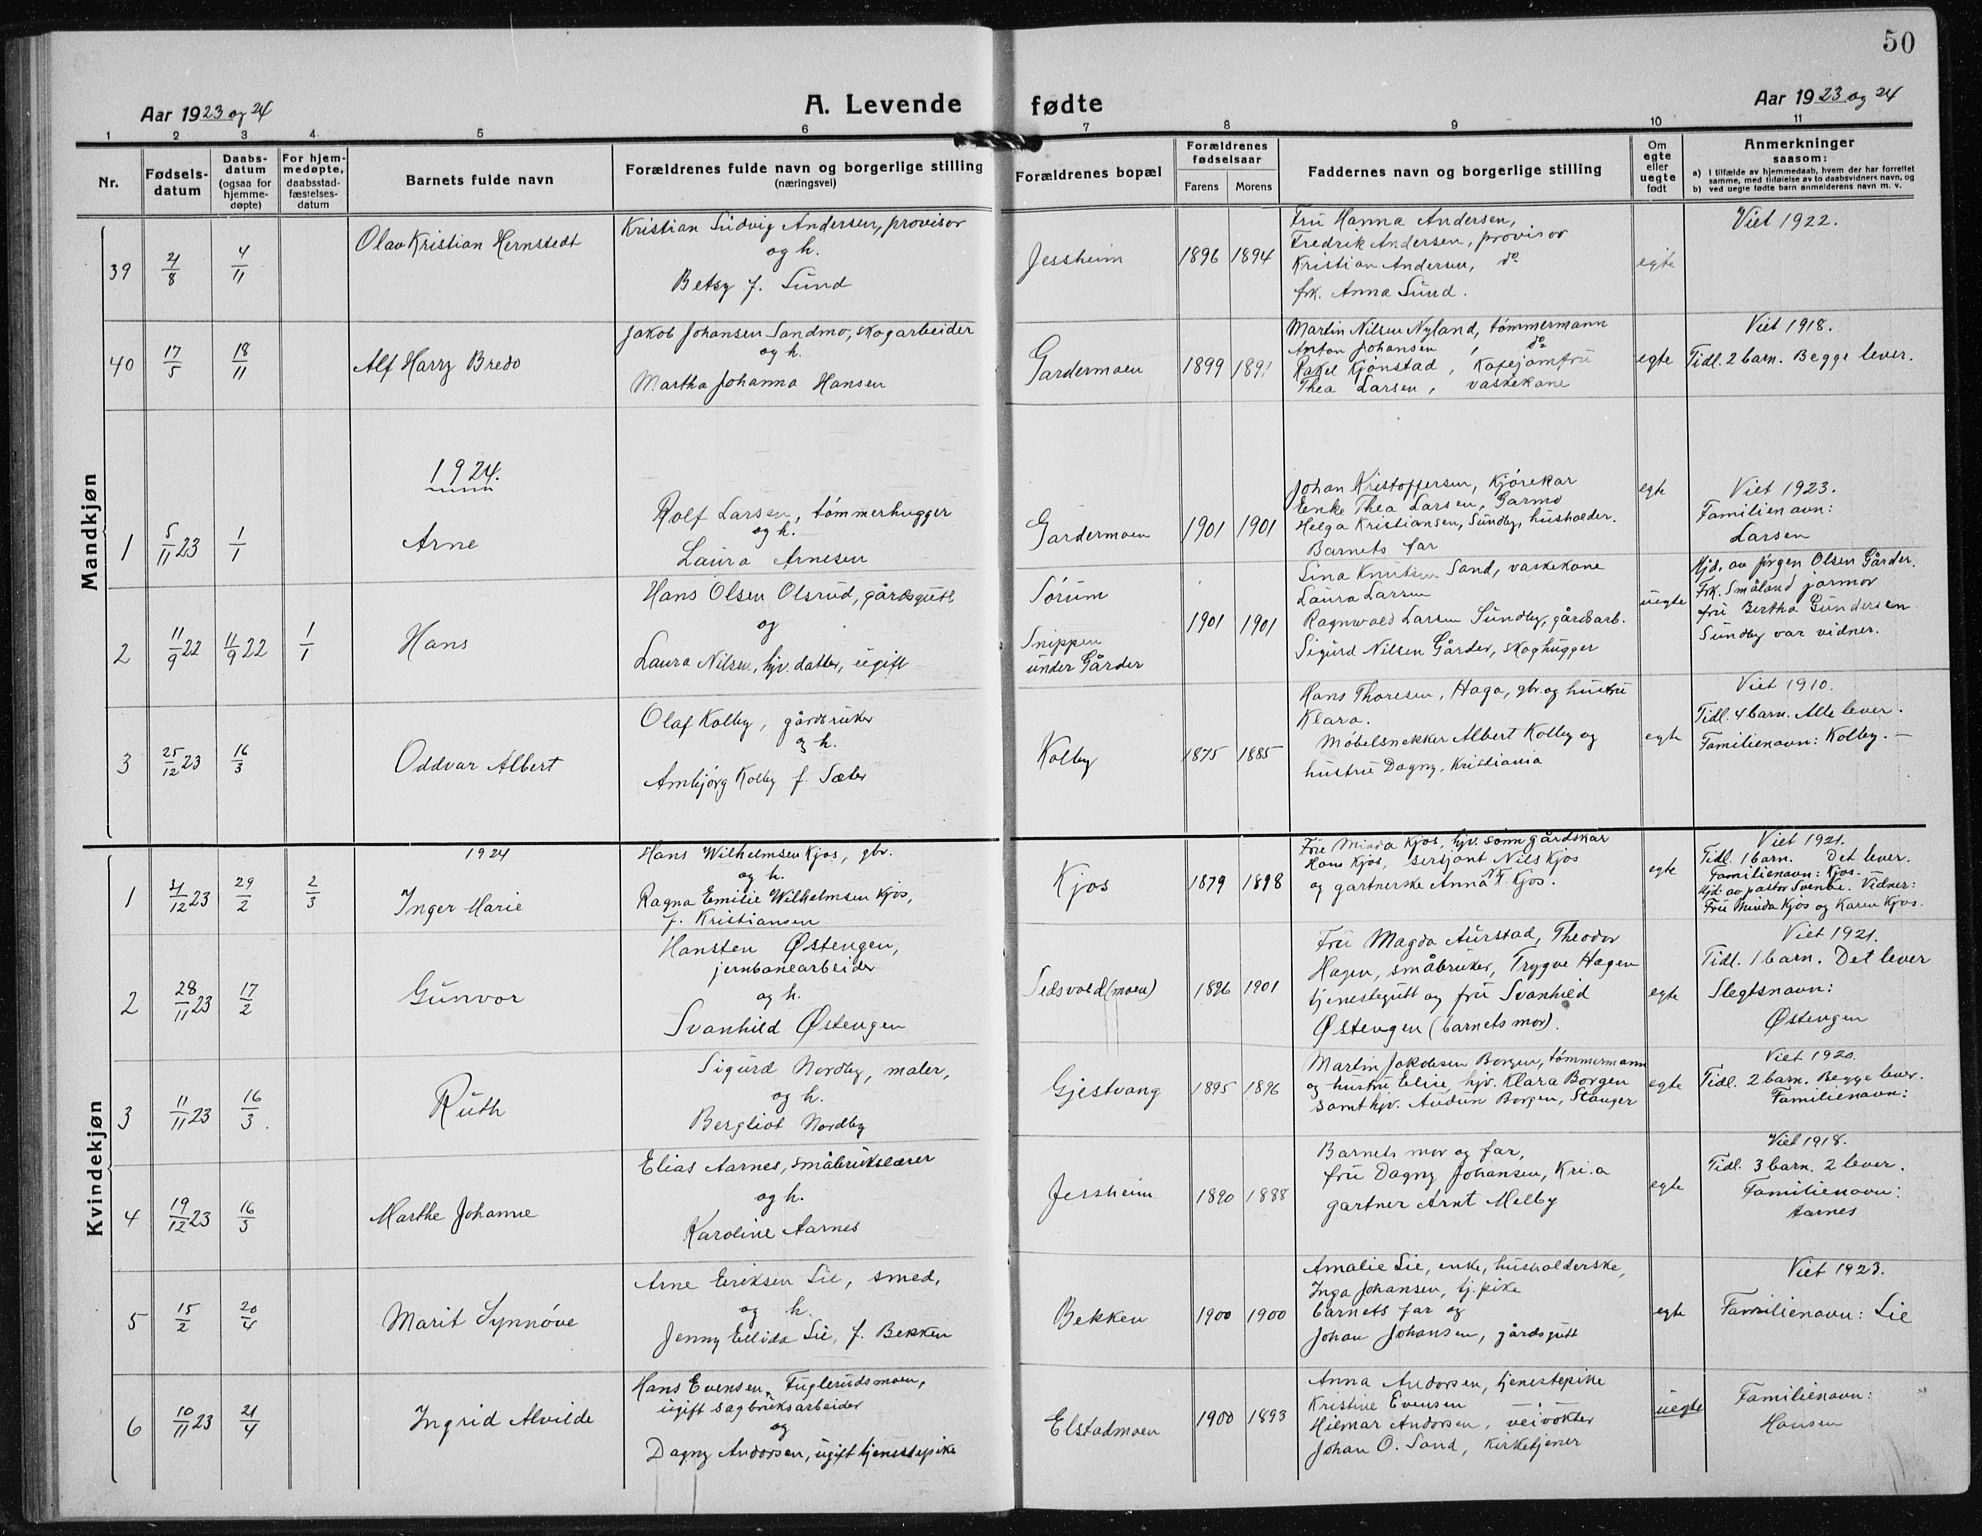 50
Aar 1923 og 24
A. Levende fødte
Aar 1923 og 24
1 2 3 4 5 6 7 8 9 10 11
Nr.
Fødsels-
datum
Daabs-
datum
(ogsaa for
hjemme-
døpte)
For hjem-
medøpte,
daabsstad-
fæstelses-
datum
Barnets fulde navn
Forældrenes fulde navn og borgerlige stilling
(næringsvei)
Forældrenes bopæl
Forældrenes
fødselsaar
Farens Morens
Faddernes navn og borgerlige stilling
Om
egte
eller
uegte
født
Anmerkninger
saasom:
a) I tilfælde av hjemmedaab, hvem der har forrettet
samme, med tilføielse av to daabsvidners navn, og
b) ved uegte fødte barn anmelderens navn m. v.
Mandkjøn
39
21/8
4/11
Olav Kristian Hernstedt
Kristian Ludvig Andersen, provisor
og h.
Betsy f. Sund
Jessheim
1896 1894
Fru Hanna Andersen,
Fredrik Andersen, provisor
Kristian Andersen, do
frk. Anna Sund.
egte
Viet 1922.
40
17/5
18/11
Alf Harry Bredo
Jakob Johansen Sandmo, skogarbeider
og h.
Martha Johanna Hansen
Gardermoen
1899 1891
Martin Nilsen Nyland, tømmermann
Anton Johansen, do
Rakel Kjønstad, Kafejomfru
Thea Larsen, vaskekone
egte
Viet 1918.
Tidl. 2 barn. Begge lever.
1924.
1
5/11 23
1/1
Arne
Rolf Larsen, tømmerhugger
og h.
Laura Arnesen
Gardermoen
1901 1901
Johan Kristoffersen, Kjørekar
Enke Thea Larsen, Garmo
Helga Kristiansen, Sundby, husholder.
Barnets far
egte
Viet 1923.
Familienavn:
Larsen
2
11/9 22
11/9 22
1/1
Hans
Hans Olsen Olsrud, gårdsgutt
og
Laura Nilsen, hjv. datter, ugift
Sørum
Snippen
under Gårder
1901 1901
Lina Knutsen Sand, vaskekone
Laura Larsen
Ragnvald Larsen Sundby, gårdsarb.
Sigurd Nilsen Gårder, skoghugger
uegte
Hjd. av Jørgen Olsen Gårder.
Frk. Småland jormor
fru Bertha Gundersen
Sundby var vidner.
3
25/12 23
16/3
Oddvar Albert
Olaf Kolby, gårdbruker
og h.
Ambjørg Kolby f. Sæter
Kolby
1875 1885
Hans Thoresen, Haga, gbr. og hustru
Klara.
Møbelsnekker Albert Kolby og
hustru Dagny, Kristiania
egte
Viet 1910.
Tidl. 4 barn. Alle lever.
Familienavn: Kolby. —
Kvindekjøn
1924
1
31/12 23
29/2
2/3
Inger Marie
Hans Wilhelmsen Kjos, gbr.
og h.
Ragna Emilie Wilhelmsen Kjos,
f. Kristiansen
Kjos
1879 1898
Fru Minda Kjos, hjv. sønn gårdskar
Hans Kjos, sersjant Nils Kjos
og gartnerske Anna F. Kjos.
egte
Viet 1921.
Tidl. 1 barn. Det lever.
Familienavn: Kjos.
Hjd. av pastor Svenke. Vidner:
Fru Minda Kjos og Karen Kjos.
2
28/11 23
17/2
Gunvor
Hansten Østengen,
jernbanearbeider
og h.
Svanhild Østengen
Sedsvold (moen)
1896 1901
Fru Magda Aurstad, Theodor
Hagen, småbruker, Trygve Hagen
tjenestegutt og fru Svanhild
Østengen (barnets mor).
egte
Viet 1921.
Tidl. 1 barn. Det lever
Slegtsnavn:
Østengen
3
11/11 23
16/3.
Ruth
Sigurd Nordby, maler,
og h.
Bergliot Nordby
Gjestvang
1895 1896
Martin Jakobsen Borgen, tømmermann
og hustru Elise, hjv. Klara Borgen
samt hjv. Audun Borgen, Stanger
egte
Viet 1920.
Tidl. 2 barn. Begge lever.
Familienavn:
4
19/12 23
16/3
Marthe Johanne
Elias Aarnes, småbrukslærer
og h.
Karoline Aarnes
Jessheim
1890 1888
Barnets mor og far,
fru Dagny Johansen, Kri.a
gartner Arnt Melby
egte
Viet 1918.
Tidl. 3 barn. 2 lever.
Familienavn:
Aarnes
5
15/2
20/4
Marit Synnøve
Arne Eriksen Lie, smed,
og h.
Jenny Elida Lie, f. Bekken
Bekken
1900 1900
Amalie Lie, enke, husholderske,
Inga Johansen, tj. pike
barnets far og
Johan Johansen, gårdsgutt
egte
Viet 1923.
Familienavn: Lie
6
10/11 23
21/4
Ingrid Alvilde
Hans Evensen, Fuglerudsmoen,
ugift sagbruksarbeider
og
Dagny Andorsen, ugift tjenestepike
Elstadmoen
1900 1893
Anna Andorsen, tjenestepike
Kristine Evensen —
Hilmar Andorsen, veivokter
Johan O. Sand, Kirketjener
uegte
Familienavn:
Hansen